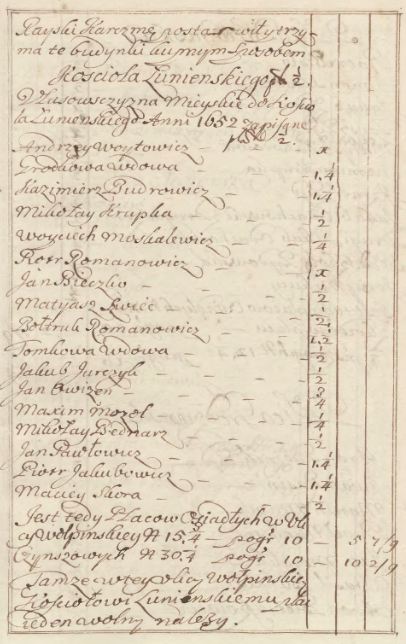 Rayski Karczmę postawił y trzy-
ma te budynki ku innym sposobem
Kościoła Łunienskiego ½.
Własowszyzna Mieyskie do Kościo
ła Łunienskiego Anni 1652 zapisane
½.
Andrzey Woytowicz - x
Grodkowa Wdowa - 1.¼
Kazimierz Piudrowicz - 1.¼
Mikołay Krupka ½
Woyciech Moskalewicz - ¼
Piotr Romanowicz - x
Jan Bieczko - ½
Matyasz Swiec - ½
Bołtruk Romanowicz - 1.½
Tomkowa Wdowa - ½
Jakub Jurczyk - ½
Jan Cwizen - ¾
Maxim Mozol - ¼
Mikołay Bednarz - ½
Jan Pawłowicz - 1.¼
Piotr Jakubowicz - 1.¼
Maciey Skora - ½
Jest tedy Placow Osiadłych w Vli
cy Wołpinskiey N 15.¼ - pogr 10 - 5 7/9
Czynszowych N 30.¼ pogr 10 - 10 2/9
Tamze w tey vlicy Wołpinskiey
Kościołowi Łunienskiemu plac
ieden wolny należy.